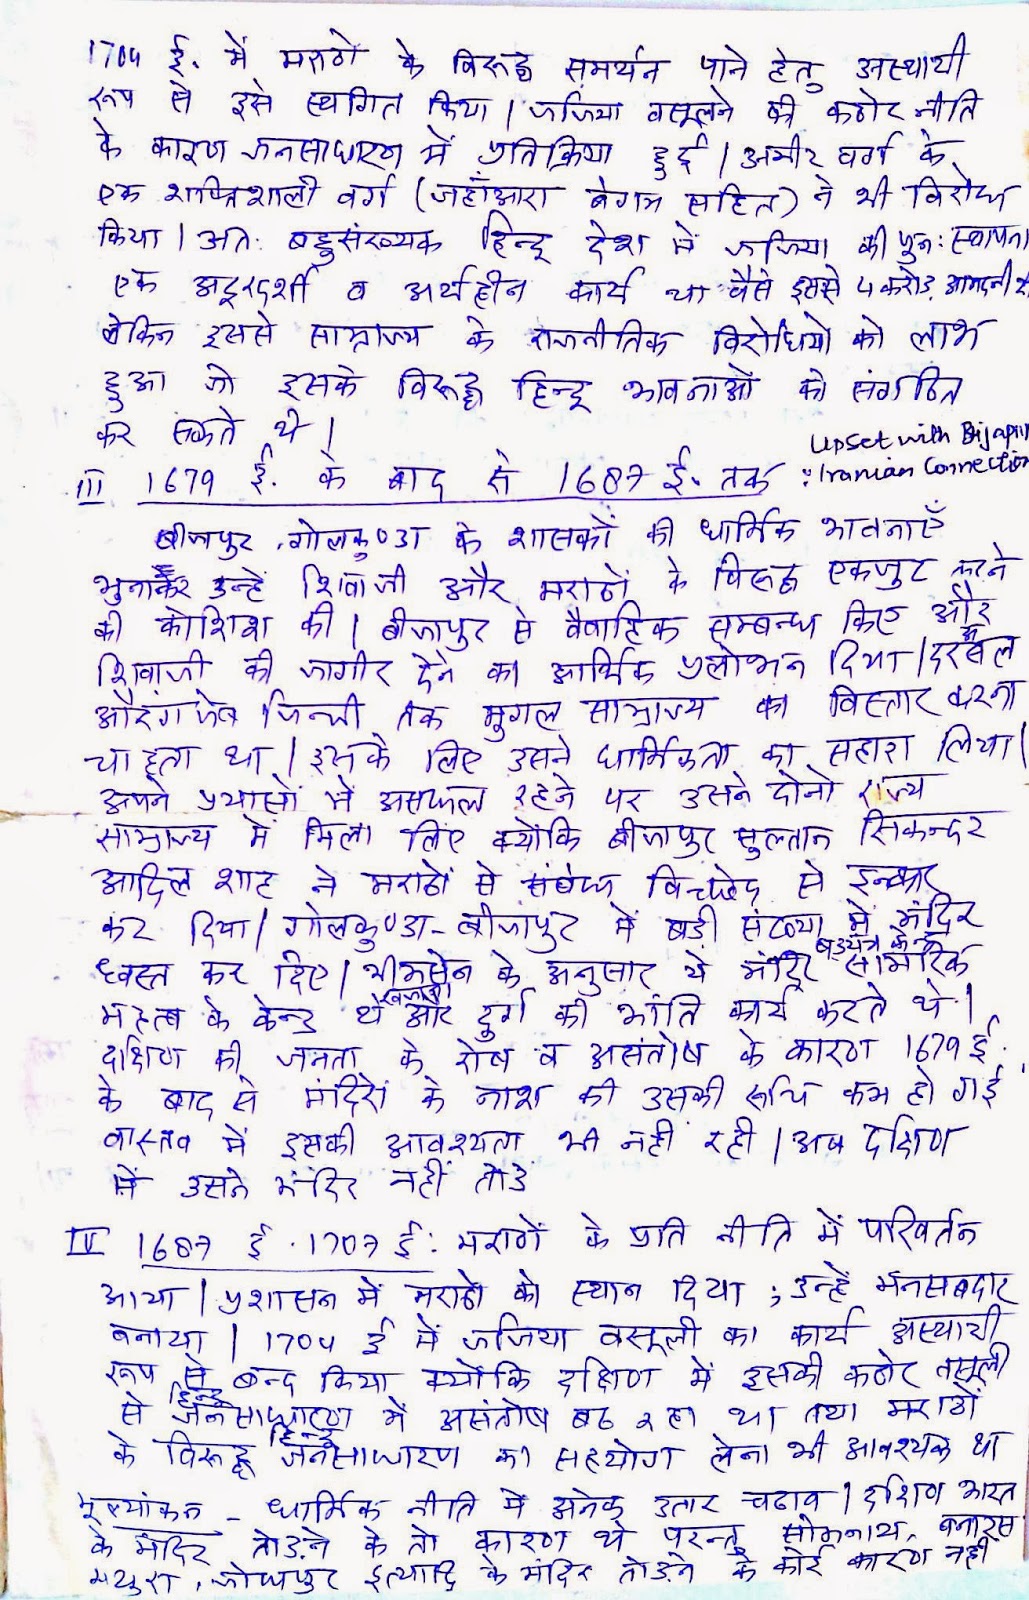 1704 ई. में मराठो के विरूद्ध समर्थन पाने हेतु अस्थायी
रूप से इसे स्थगित किया | जजिया वसूलने की कठोर नीति
के कारण जनसाधारण में प्रतिक्रिया हुई | अमीर वर्ग के
एक शक्तिशाली वर्ग (जहाँआरा बेगम सहित) ने भी विरोध
किया | अतः बहुसंख्यक हिन्दू देश में जजिया की पुनः स्थापना
एक अदूरदर्शी व अर्थहीन कार्य था वैसे इससे 4 करोड़ आमदनी थी
लेकिन इससे साम्राज्य के राजनीतिक विरोधियो को लाभ
हुआ जो इसके विरूद्ध हिन्दू भावनाओं को संगठित
कर सकते थे |
Upset with Bijapur
: Iranian Connection
III 1679 ई. के बाद से 1687 ई. तक
बीजापुर, गोलकुण्डा के शासकों की धार्मिक भावनाएँ
भुनाकर उन्हें शिवाजी और मराठों के विरूद्ध एकजुट करने
की कोशिश की | बीजापुर से वैवाहिक सम्बन्ध किए और
शिवाजी की जागीर देने का आर्थिक प्रलोभन दिया | दरअसल
औरंगजेब जिन्जी तक मुगल साम्राज्य का विस्तार करना
चाहता था | इसके लिए उसने धार्मिकता का सहारा लिया |
अपने प्रयासों में असफल रहने पर उसने दोनो राज्य
साम्राज्य में मिला लिए क्योंकि बीजापुर सुल्तान सिकन्दर
आदिल शाह ने मराठों से संबंध विच्छेद से इन्कार
कर दिया | गोलकुण्डा-बीजापुर में बड़ी संख्या में मंदिर
ध्वस्त कर दिए | भीमसेन के अनुसार ये मंदिर षडयंत्र के व सामरिक
महत्व के केन्द्र थे और दुर्ग की भांति कार्य करते थे |
दक्षिण की जनता के रोष व असंतोष के कारण 1679 ई.
के बाद से मंदिरों के नाश की उसकी रूचि कम हो गई
वास्तव में इसकी आवश्यता भी नहीं रही | अब दक्षिण
में उसने मंदिर नहीं तोडे
IV 1687 ई. 1707 ई: मराठों के प्रति नीति में परिवर्तन
आया | प्रशासन में मराठो को स्थान दिया ; उन्हें मनसबदार
बनाया | 1704 ई में जजिया वसूली का कार्य अस्थायी
रूप से बन्द किया क्योंकि दक्षिण में इसकी कठोर वसूली
से हिन्दू जनसाधारण में असंतोष बढ रहा था तथा मराठों
के विरूद्ध हिन्दू जनसाधारण का सहयोग लेना भी आवश्यक था
मूल्यांकन - धार्मिक नीति में अनेक उतार चढाव | दक्षिण भारत
के मंदिर तोडने के तो कारण थे परन्तु सोमनाथ, बनारस
मथुरा, जोधपुर इत्यादि के मंदिर तोडने के कोई कारण नहीं